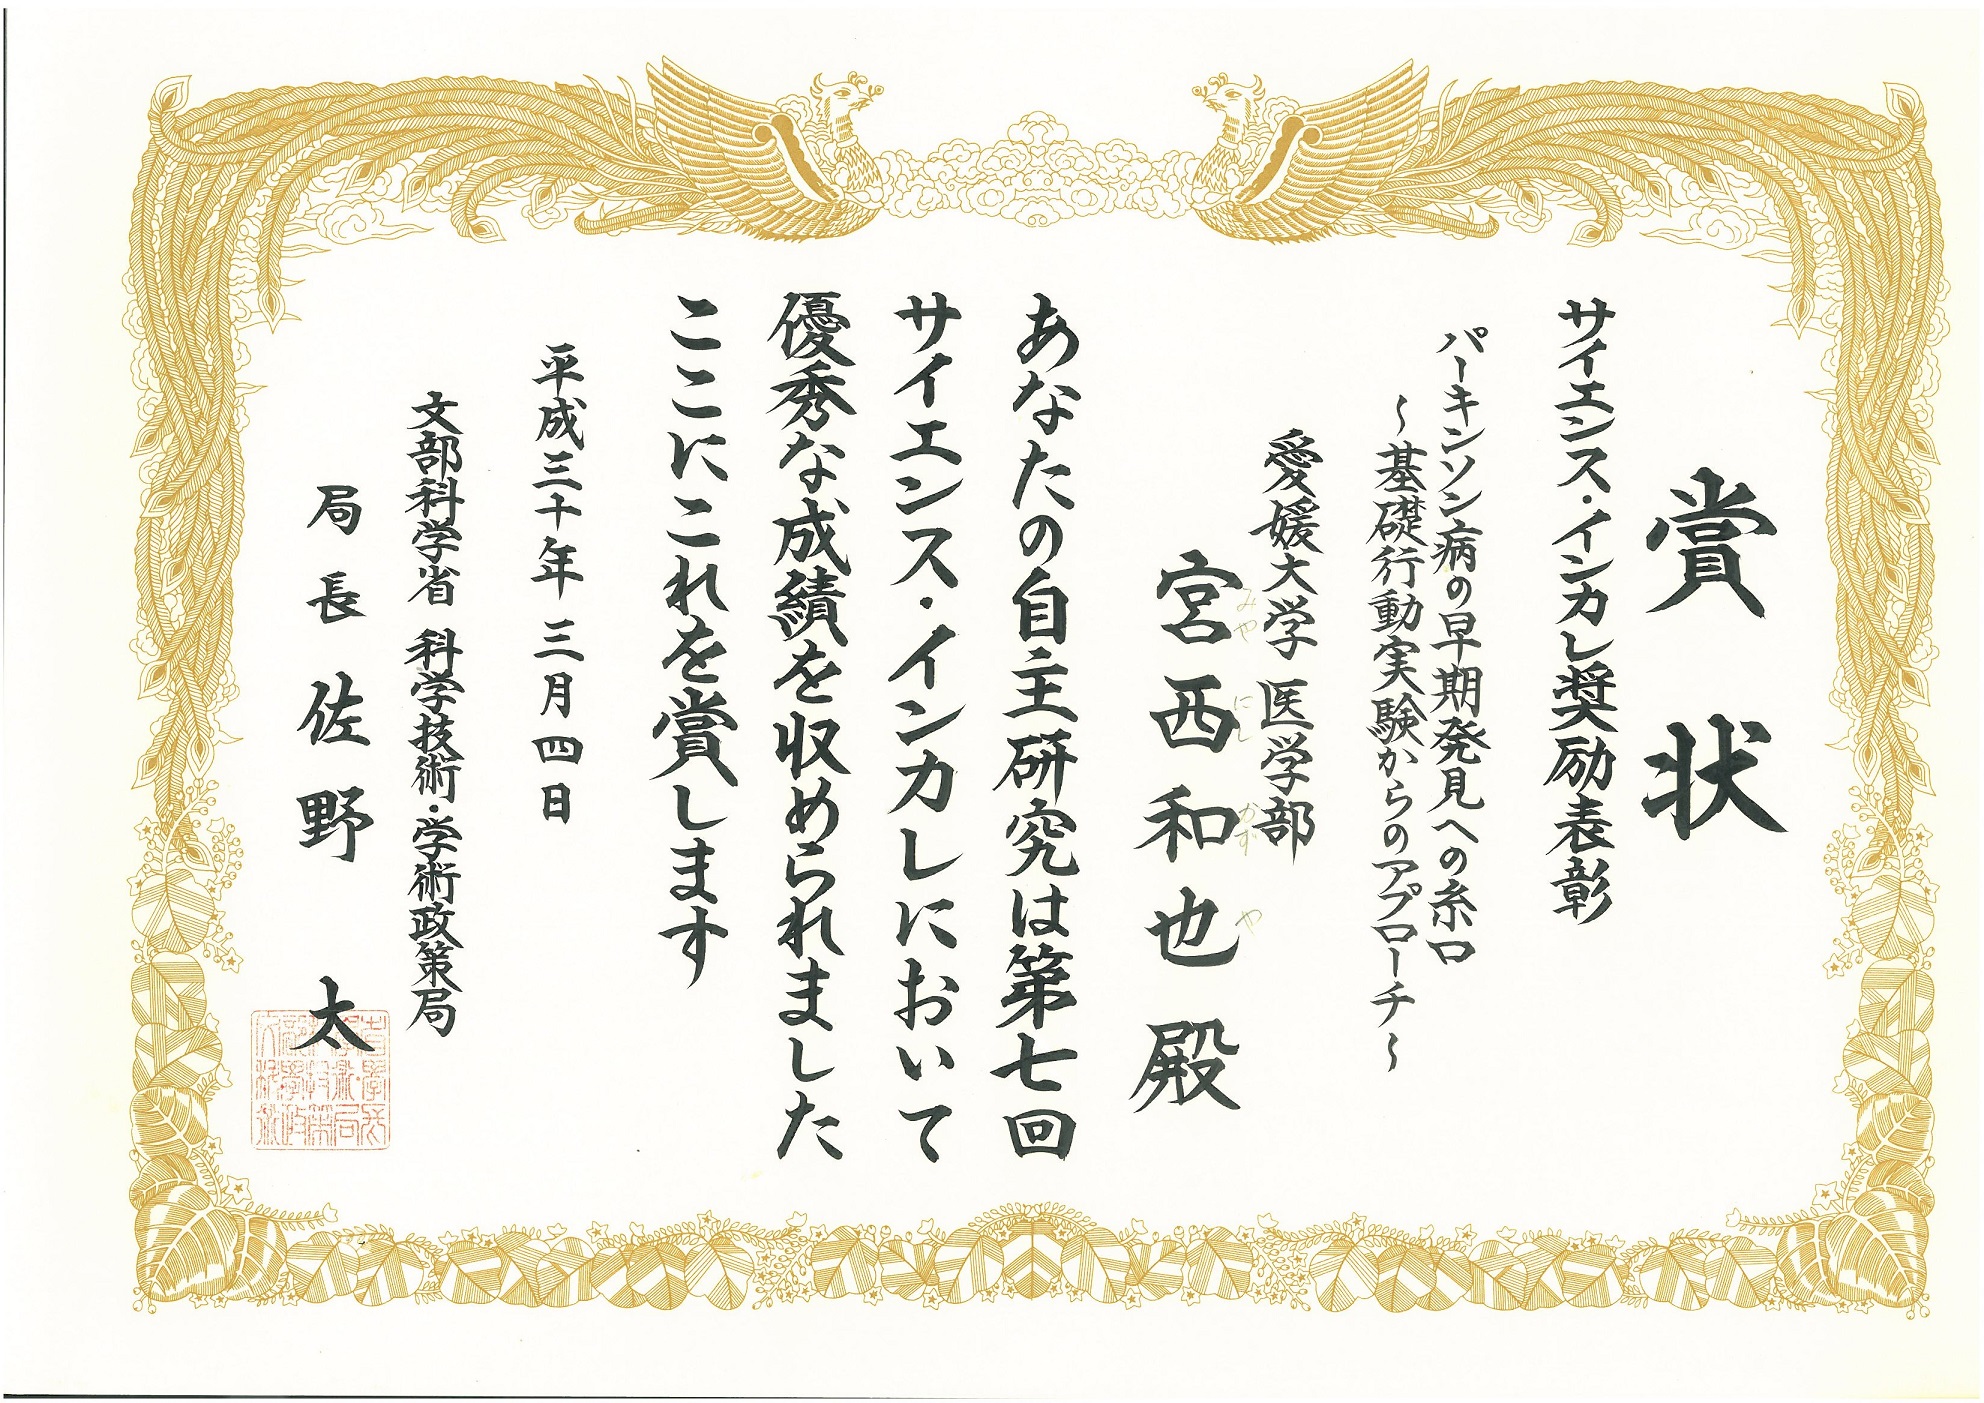 賞状
サイエンス・インカレ奨励表彰
パーキンソン病の早期発見への糸口
～基礎行動実験からのアプローチ～
愛媛大学 医学部
みや にし かず や
宮西和也 殿
あなたの自主研究は第七回
サイエンス・インカレにおいて
優秀な成績を収められました
ここにこれを賞します
平成三十年 三月四日
文部科学省 科学技術・学術政策局
局長 佐野 太